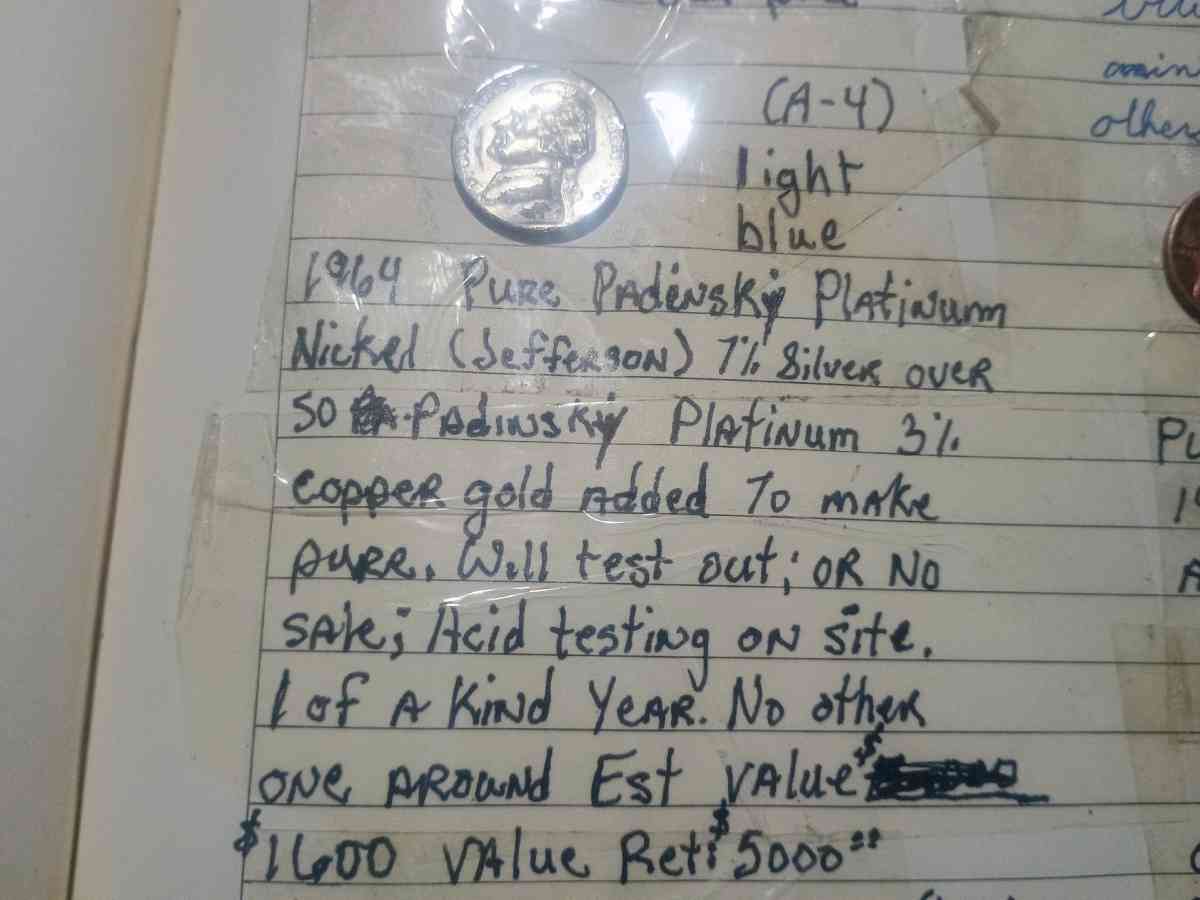 (A-4)
light
blue
1964 Pure Padinsky Platinum
Nickel (Jefferson) 7% Silver over
50 Padinsky Platinum 3%
copper gold Added To make
pure. Will test out; OR No
sale; Acid testing on site.
1 of A Kind Year. No other
one Around Est value $
$1600 Value Ret: $5000.00
other
Pu